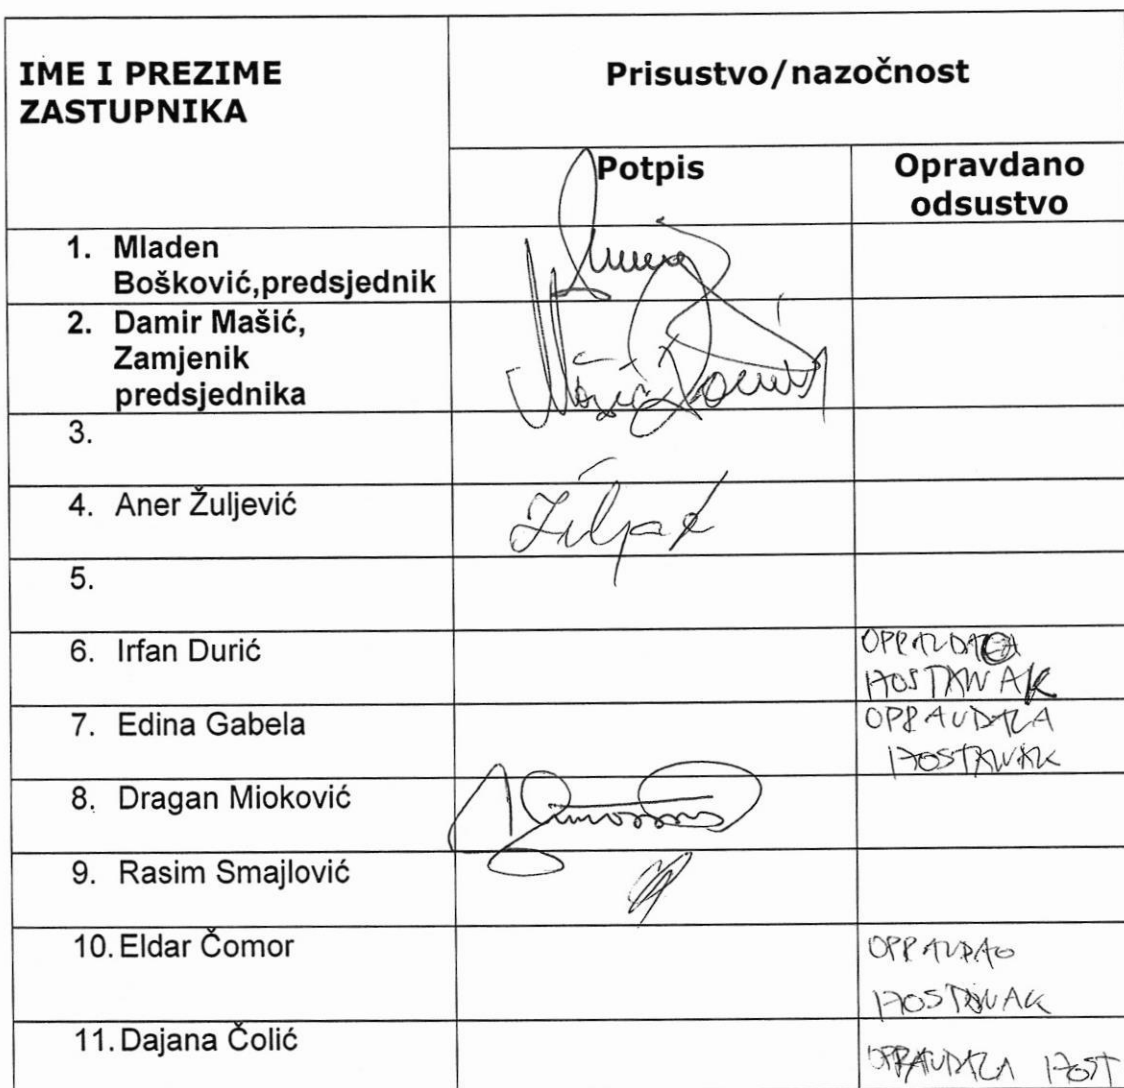 IME I PREZIME
ZASTUPNIKA
Prisustvo/nazočnost
Potpis
Opravdano
odsustvo
1. Mladen
Bošković,predsjednik
2. Damir Mašić,
Zamjenik
predsjednika
Mašić Damir
3.
4. Aner Žuljević
5.
6. Irfan Durić
7. Edina Gabela
OPRAVDALA
8. Dragan Mioković
9. Rasim Smajlović
10. Eldar Čomor
OPRAVDAO
11. Dajana Čolić
OPRAVDALA